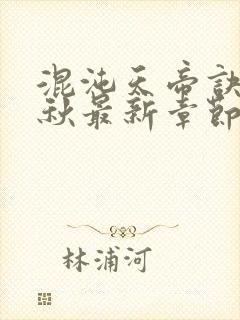 混沌天帝诀
秋最新章節
林浦河